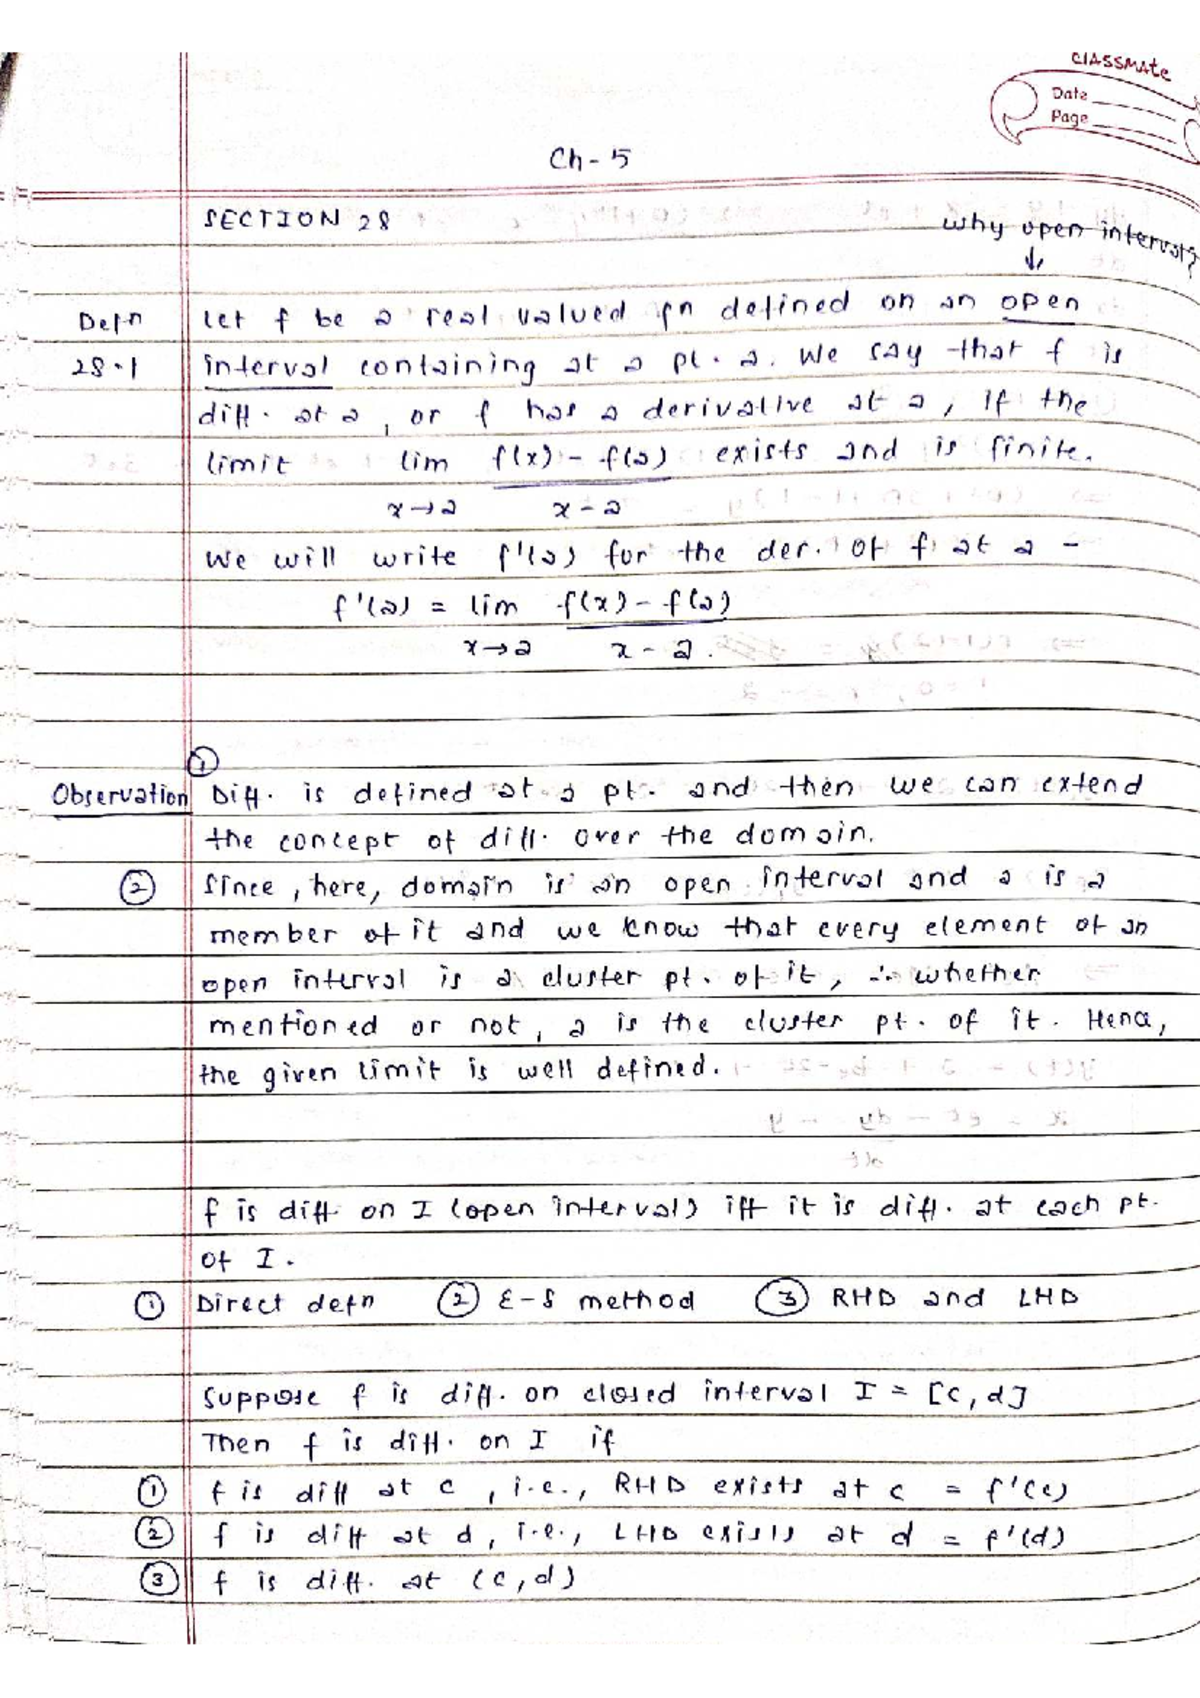 classmate
Date
Page
Ch-5
SECTION 28
Why open interval?
↓
Defn Let f be a real valued fn defined on an open
28.1 interval containing at a pt. a. We say that f is
diff. at a, or f has a derivative at a, if the
limit lim f(x) - f(a) exists and is finite.
x→a x-a
We will write f'(a) for the der. of f at a -
f'(a) = lim f(x) - f(a)
x→a x - a.
①
Observation Diff. is defined at a pt. and then we can extend
the concept of diff. over the domain.
② Since, here, domain is an open interval and a is a
member of it and we know that every element of an
open interval is a cluster pt. of it, ∴ whether
mentioned or not, a is the cluster pt. of it. Hence,
the given limit is well defined.
f is diff on I (open interval) iff it is diff. at each pt.
of I.
① Direct defn ② ε-δ method ③ RHD and LHD
Suppose f is diff. on closed interval I = [c, d]
Then f is diff. on I if
① f is diff at c, i.e., RHD exists at c = f'(c)
② f is diff at d, i.e., LHD exists at d = f'(d)
③ f is diff. at (c, d)